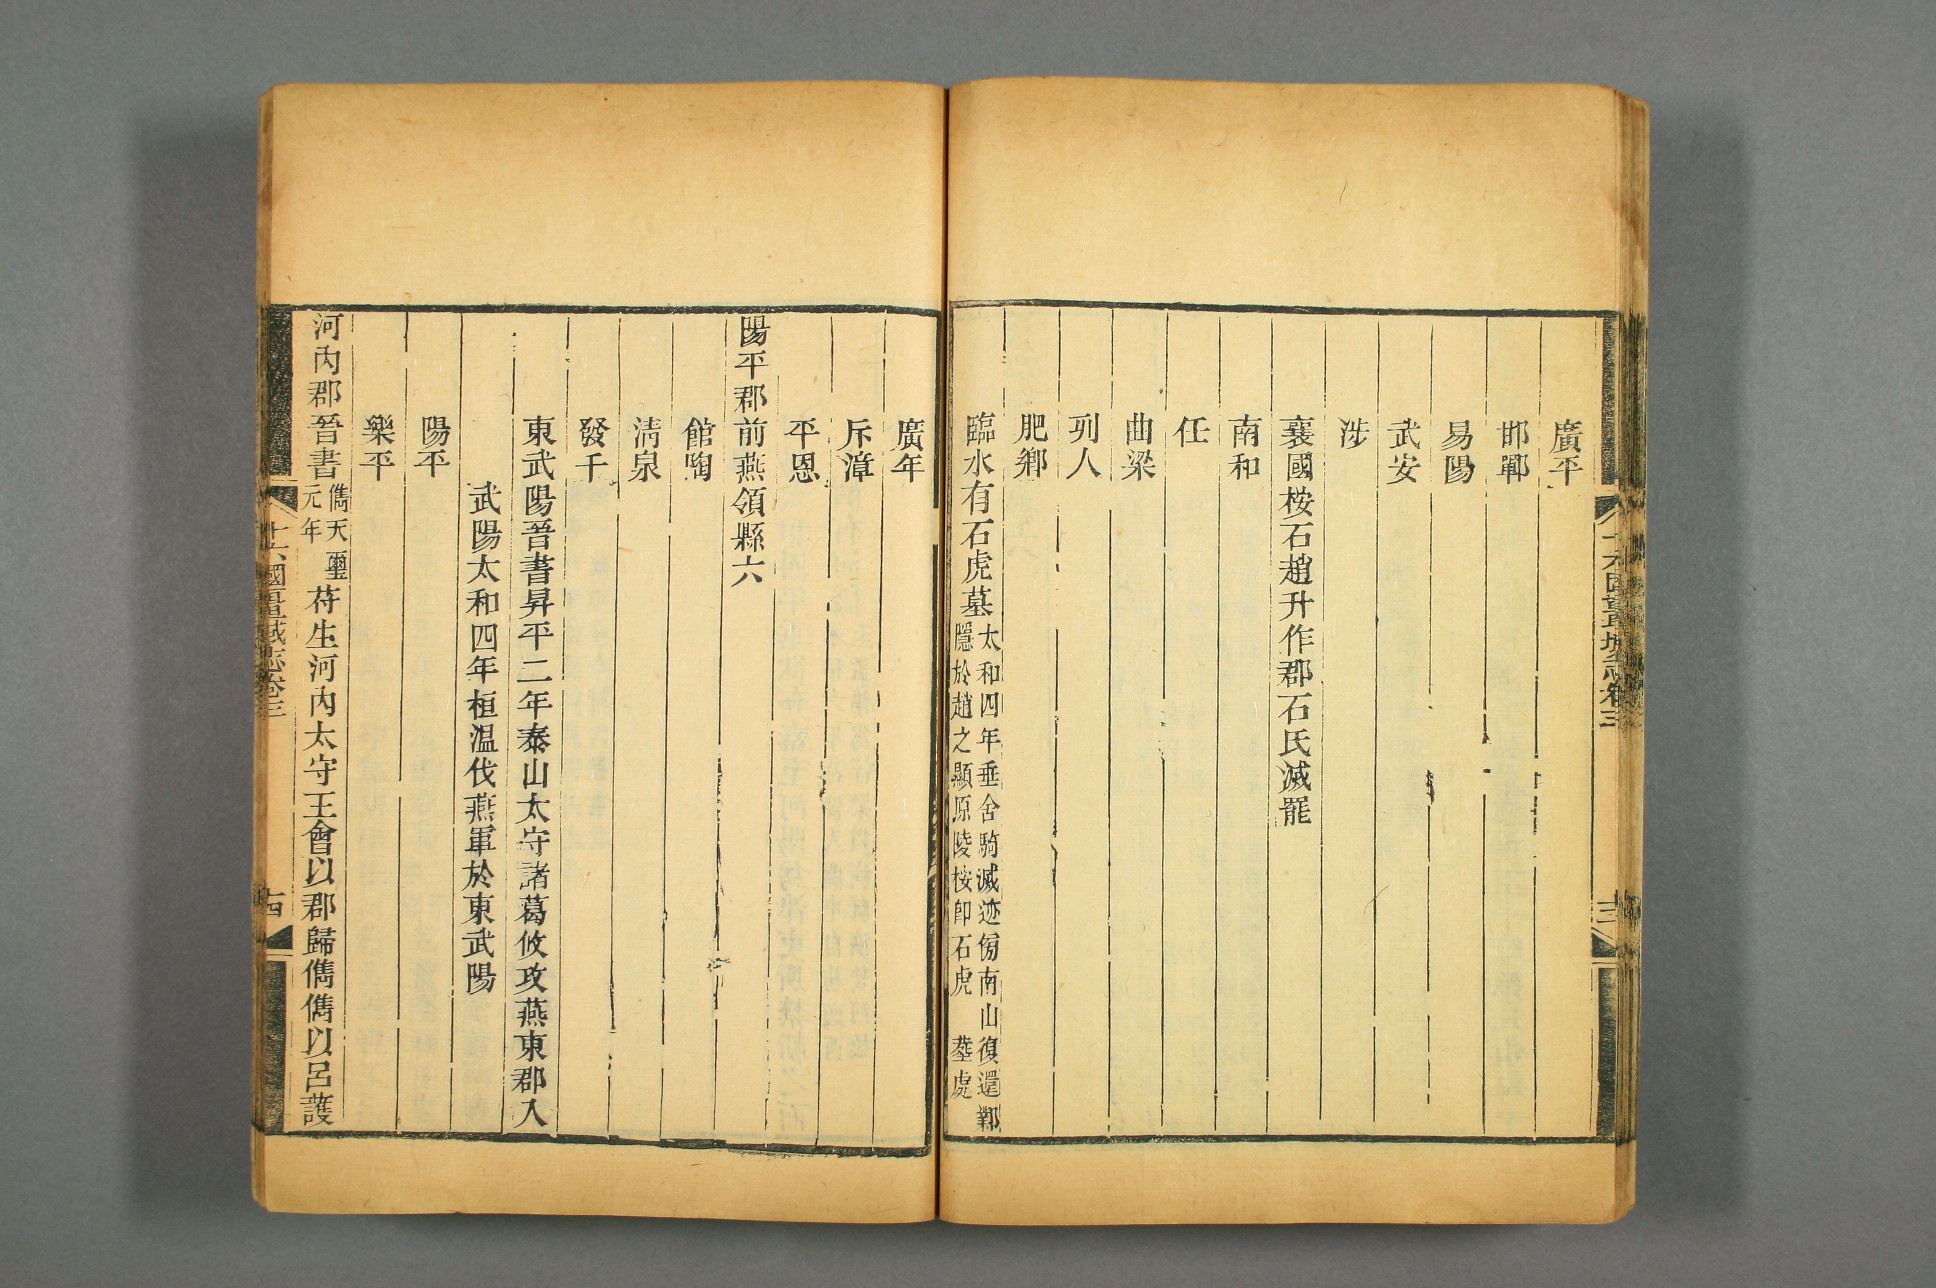 十六國疆域志卷三
廣平
邯鄲
易陽
武安
涉
襄國桉石趙升作郡石氏滅罷
南和
任
曲梁
列人
肥鄉
臨水有石虎墓太和四年垂舍騎滅迹傍南山復還鄴
隱於趙之顯原陵桉卽石虎墓處
廣年
斥漳
平恩
陽平郡前燕領縣六
館陶
清泉
發干
東武陽晉書昇平二年泰山太守諸葛攸攻燕東郡入
武陽太和四年桓溫伐燕軍於東武陽
陽平
樂平
河內郡晉書儁天璽
元年
苻生河內太守王會以郡歸儁儁以呂護
十六國疆域志卷三